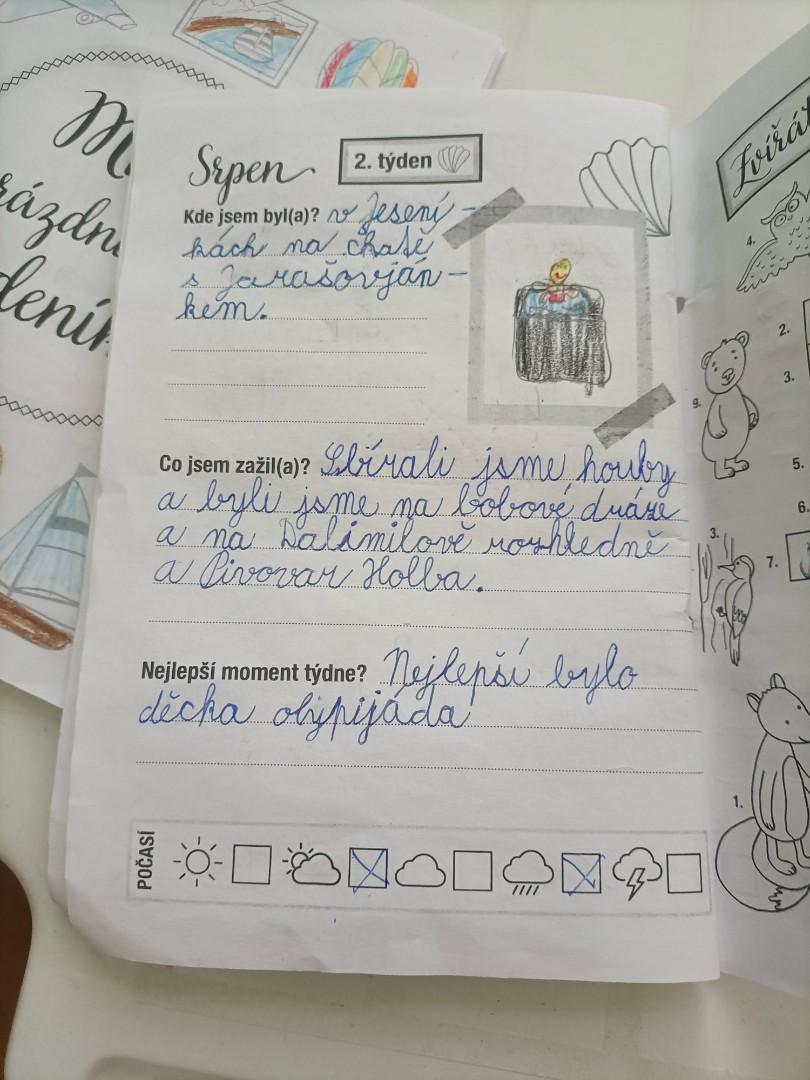 Srpen
2. týden
Kde jsem byl(a)? v Jesení-
kách na chatě
s Jarašovján-
kem.
Co jsem zažil(a)? Sbírali jsme houby
a byli jsme na bobové dráze
a na Dalimilově rozhledně
a Pivovar Holba.
Nejlepší moment týdne? Nejlepší bylo
děcka olypijáda
POČASÍ
M
rázdn
dení
Zvířát
4.
2.
3.
9.
5.
6.
3.
7.
1.